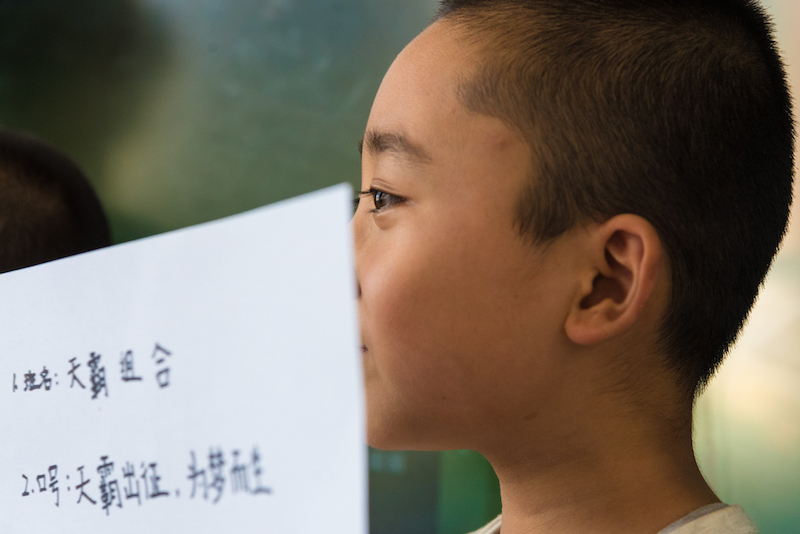 1.班名:天霸组合
2.口号:天霸出征,为梦而生